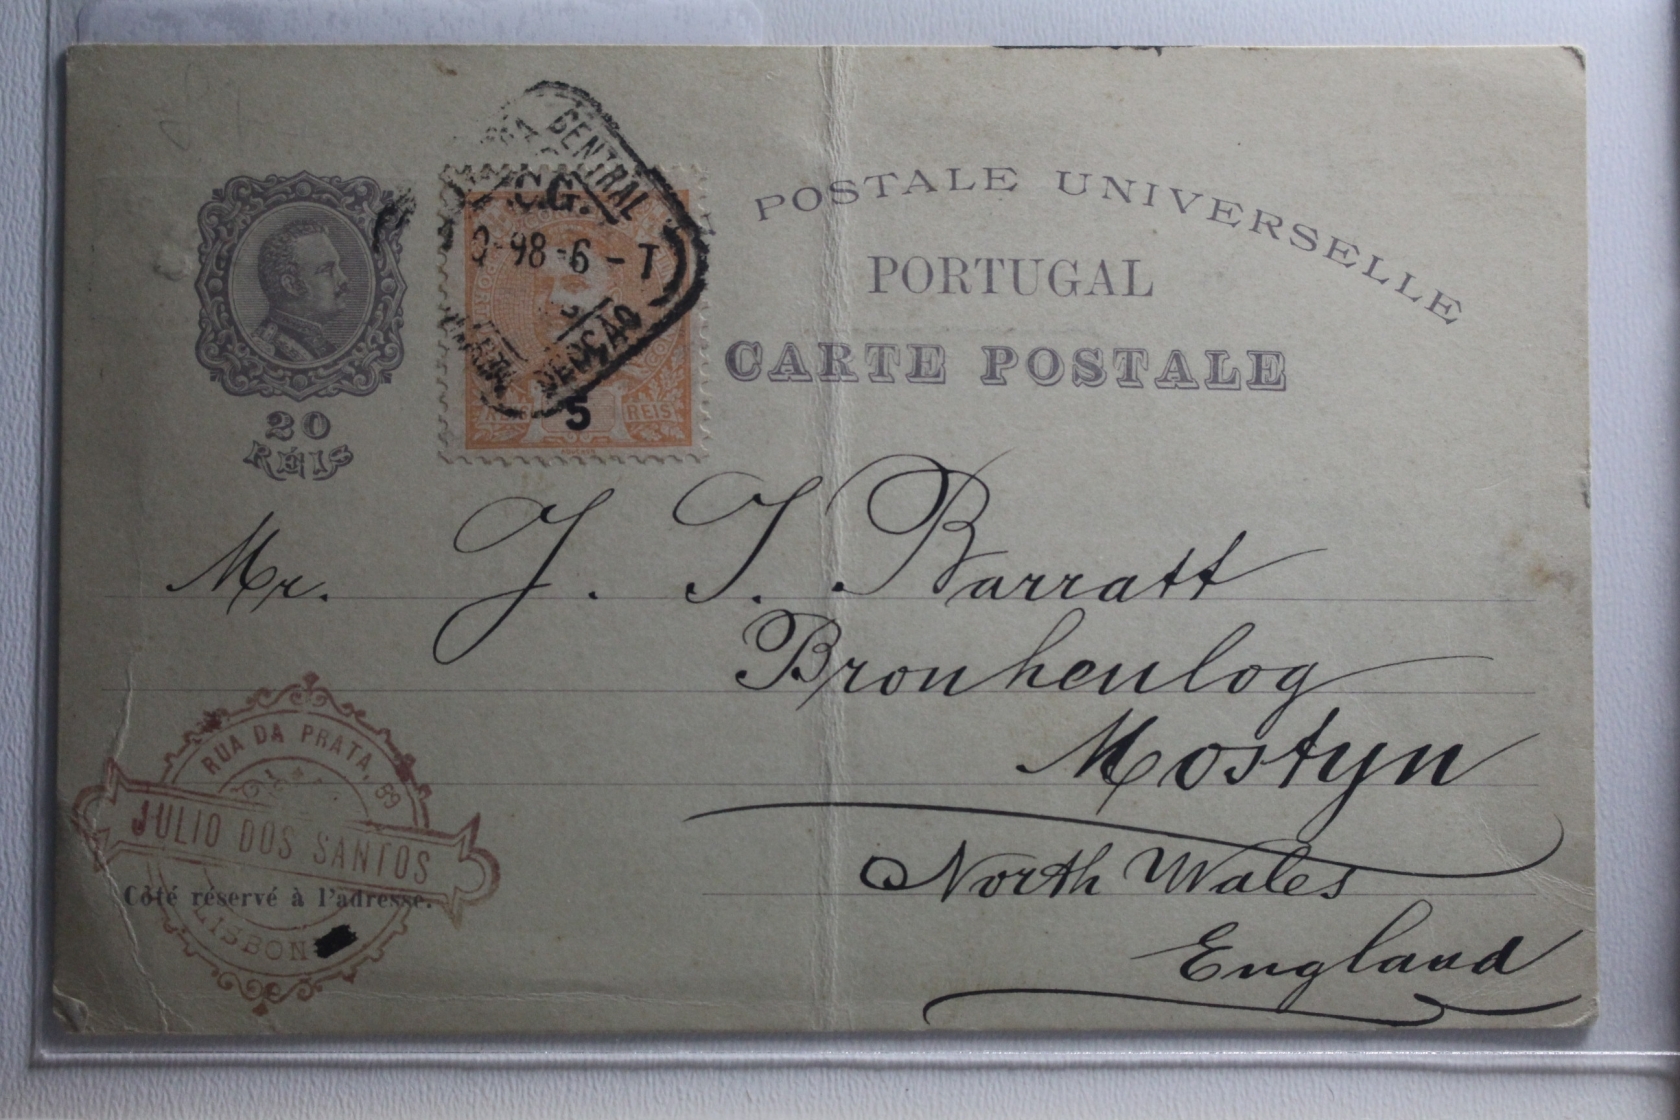 POSTALE UNIVERSELLE
PORTUGAL
CARTE POSTALE
20
REIS
CENTRAL
C.G.
-98-6-T
SECÇÃO
REIS 5 REIS
Mr. J. T. Barratt
Bronheulog
Mostyn
North Wales
England
RUA DA PRATA, 89
JULIO DOS SANTOS
LISBON
Côté réservé à l'adresse.